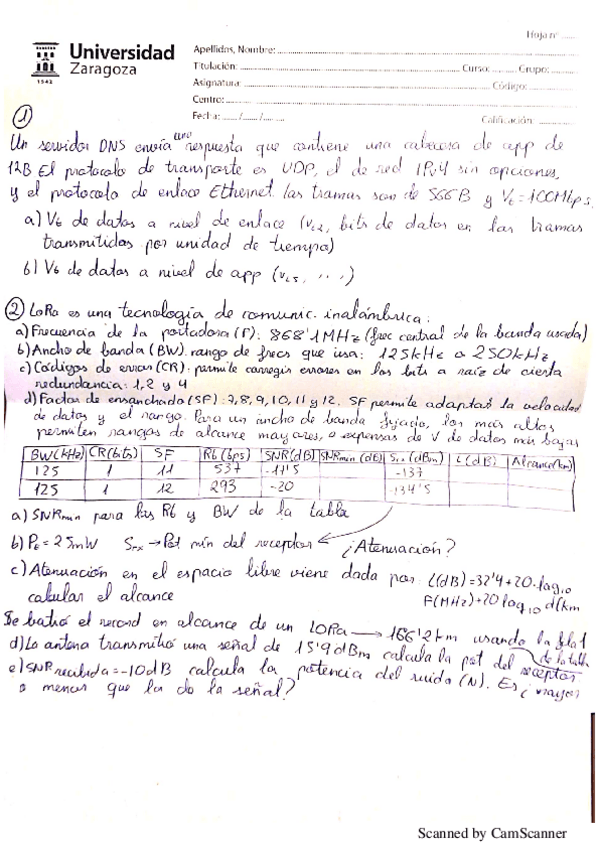 Hoja nº ........
Universidad
Zaragoza
1542
Apellidos, Nombre:
Titulación: Curso: Grupo:
Asignatura: Código:
Centro:
Fecha: / /
Calificación:
1
Un servidor DNS envía uno respuesta que contiene una cabecera de app de
12B El protocolo de transporte es UDP, el de red IPv4 sin opciones,
y el protocolo de enlace Ethernet. las tramas son de 566B y Vt=100Mbps.
a) Vt de datos a nivel de enlace (VL2, bits de datos en las tramas
transmitidas por unidad de tiempo)
b) Vt de datos a nivel de app (VL5, ...)
2 LoRa es una tecnología de comunic. inalámbrica:
a) Frecuencia de la portadora (F): 868'1MHz (frec central de la banda usada)
b) Ancho de banda (BW). rango de frecs que usa: 125kHz o 250kHz
c) Códigos de error (CR): permite corregir errores en los bits a raíz de cierta
redundancia: 1,2 y 4
d) Factor de ensanchado (SF): 7,8,9,10,11 y 12. SF permite adaptar la velocidad
de datos y el rango. Para un ancho de banda fijado, los más altos
permiten rangos de alcance mayores, a expensas de V de datos más bajas
BW(kHz) CR(bits) SF Rb(bps) SNR(dB) SNRmin(dB) Srx(dBm) L(dB) Alcance(km)
125 1 11 537 -11'5 -137
125 1 12 293 -20 -134'5
a) SNRmin para las Rb y BW de la tabla
b) Pt=25mW Srx→Pot mín del receptor ¿Atenuación?
c) Atenuación en el espacio libre viene dada por: L(dB)=32'4+20·log10
calcular el alcance F(MHz)+20log10 d(km
Se batió el record en alcance de un LORa → 166'2km usando la flat
de la tabla
d) La antena transmitió una señal de 15'9dBm calcula la pot del receptor
e) SNR recibida=-10dB calcula la potencia del ruido (N). Es ¿mayor
o menor que la de la señal?
Scanned by CamScanner